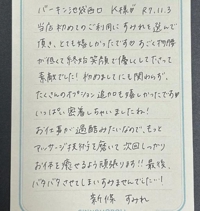 バーキン池袋西口 K様が R7.11.3
当店初めてのご利用にすみれを選んで
頂き、とても嬉しかったですが
が低くて終始笑顔で優しくして下さって
素敵でした! 初めましてにも関わらず、
たくさんのオプション追加も嬉しかったですが
いっぱい密着しちゃいましたね!
お仕事が過酷みたいなので、もって
マッサージ技術を磨いて次回しっかり
お体を癒せるよう頑張ります!! 最後、
バタバタさせてしまいすみませんでした…!
新宿 すみれ